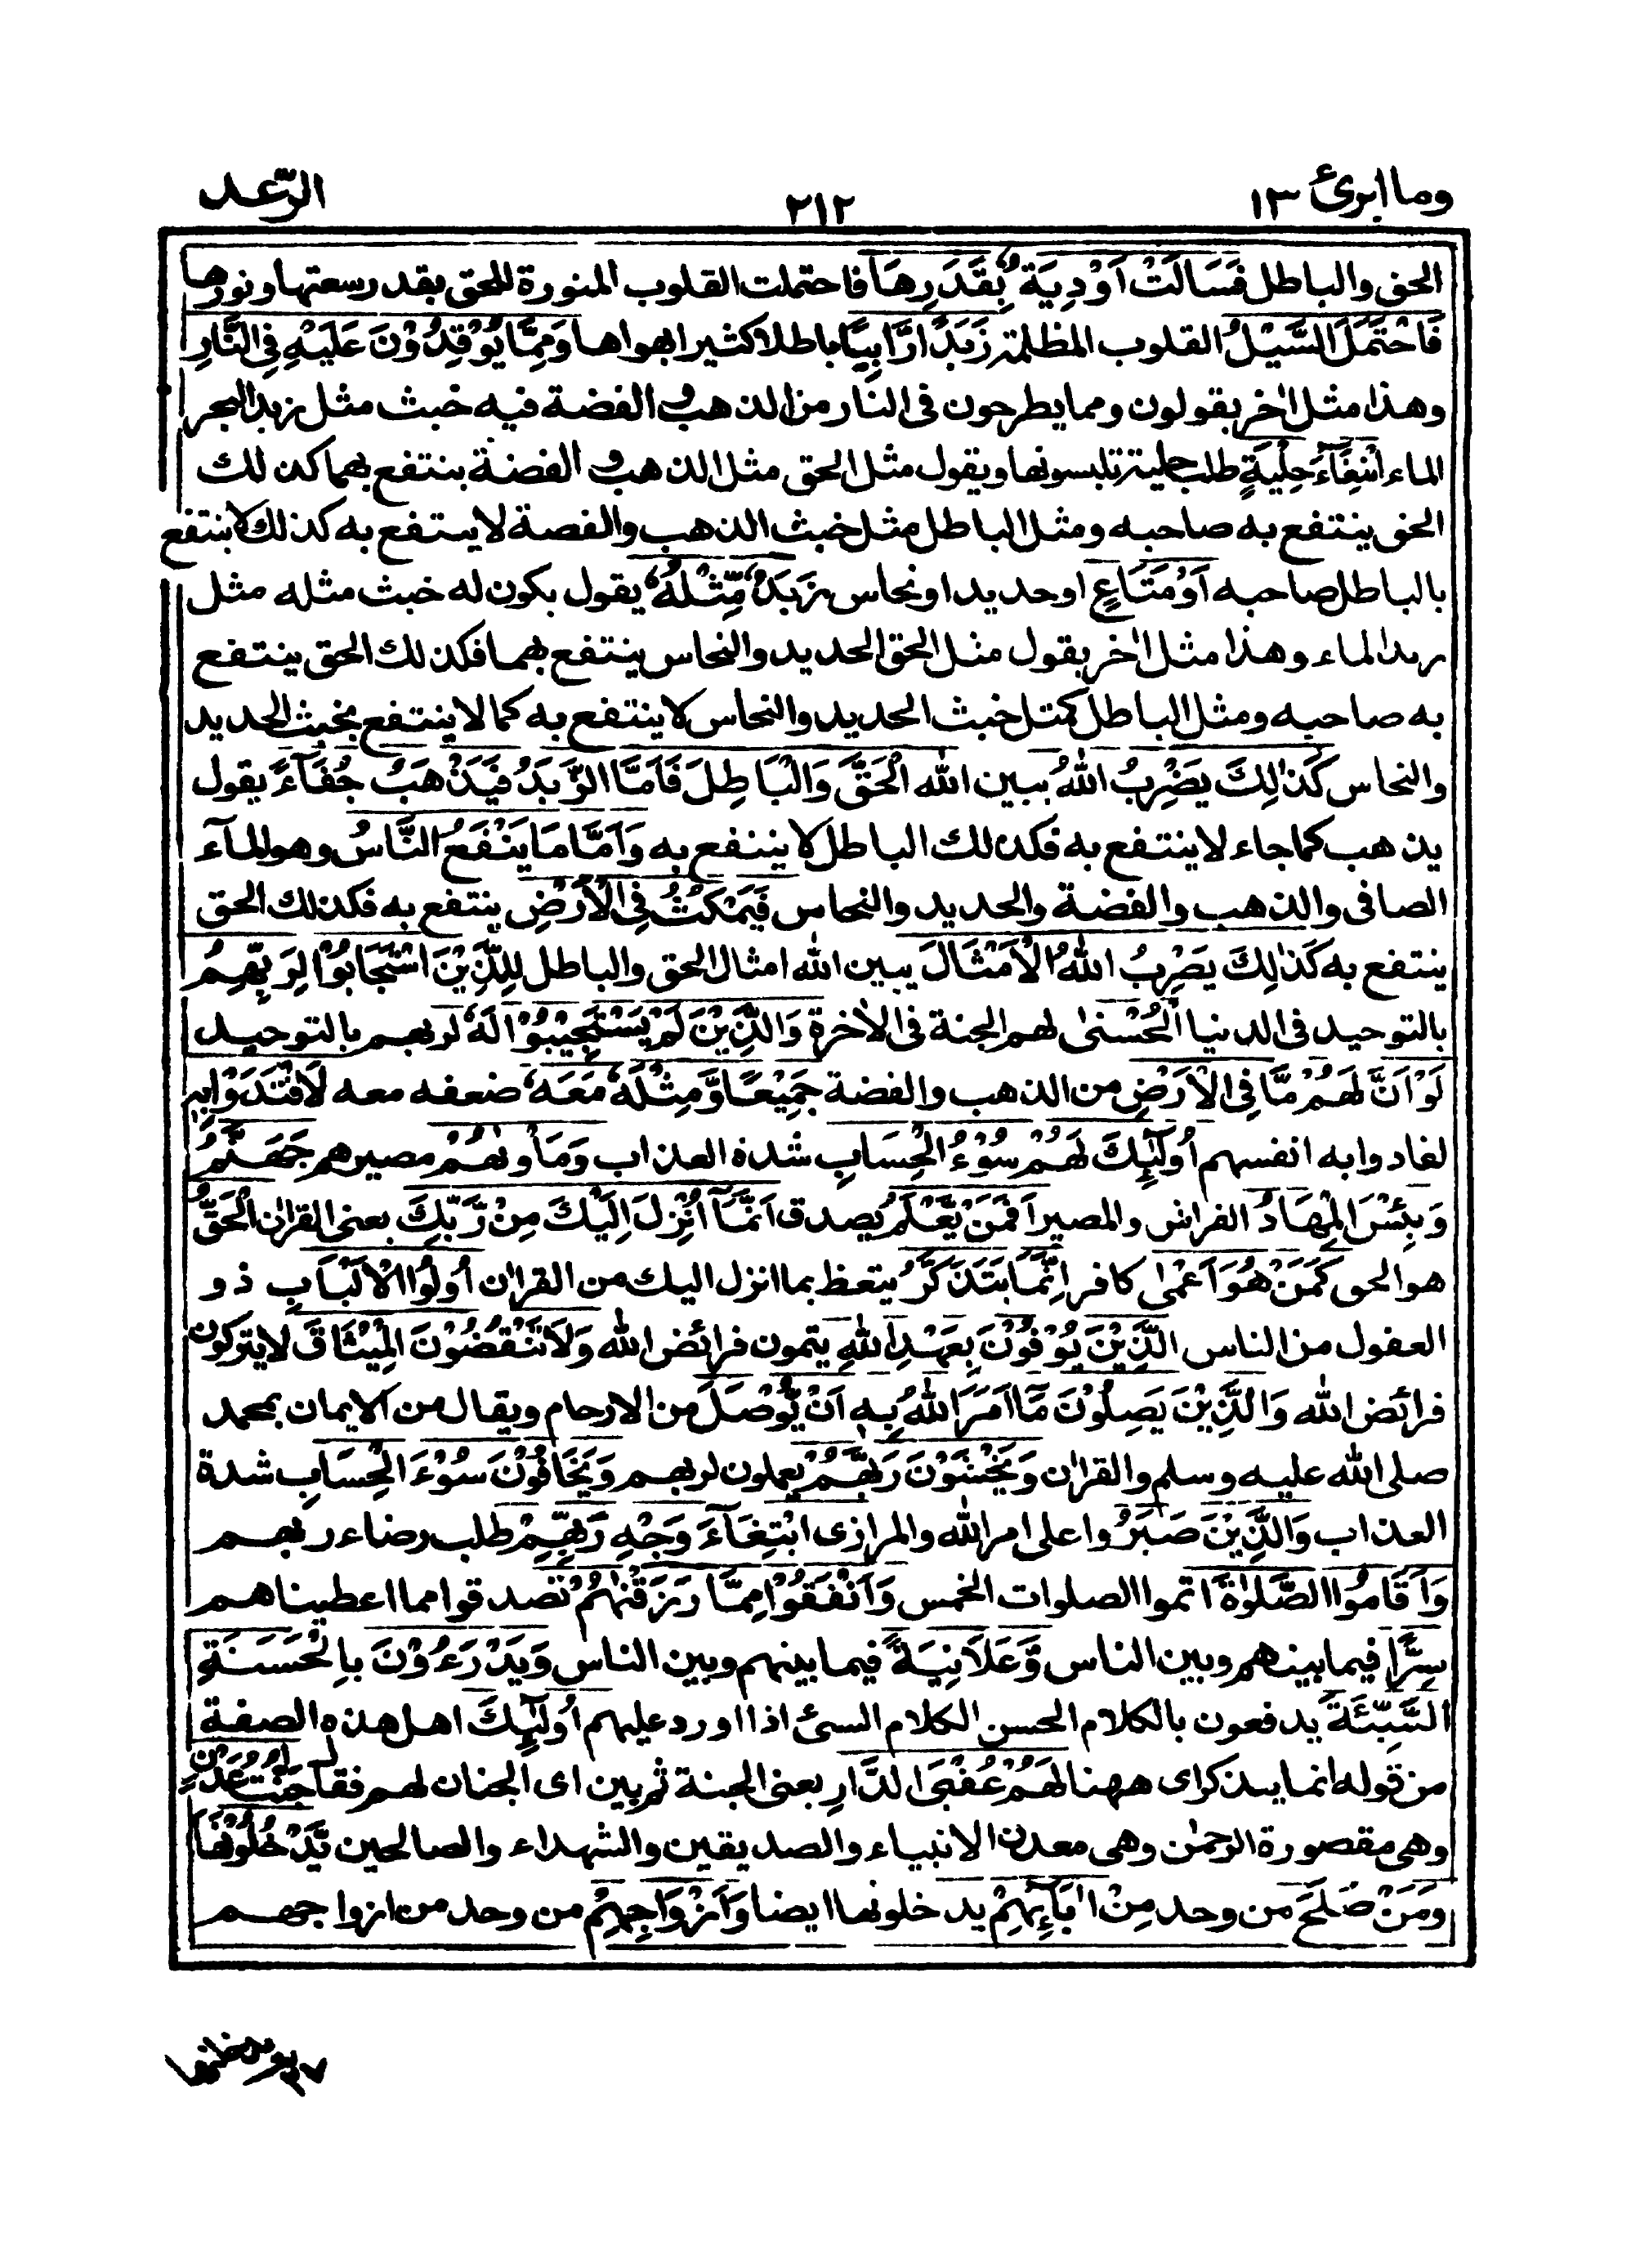 وما ابرئ ١٣
٢١٢
الرّعد
الحق والباطل فَسَالَتْ اَوْدِيَةٌۢ بِقَدَرِهَا فاحتملت القلوب المنورة للحق بقدر سعتها ونورها
فَاحْتَمَلَ السَّيْلُ القلوب المظلمة زَبَدًا رَّابِيًا باطلا كثيرا بهواها وَمِمَّا يُوْقِدُوْنَ عَلَيْهِ فِي النَّارِ
وهذا مثل اٰخر يقولون ومما يطرحون فى النار من الذهب و الفضة فيه خبث مثل زبد البحر
الماء ابْتِغَآءَ حِلْيَةٍ طلب حلية تلبسونها ويقول مثل الحق مثل الذهب و الفضة ينتفع بهما كذلك
الحق ينتفع به صاحبه ومثل الباطل مثل خبث الذهب والفضة لا ينتفع به كذلك لا ينتفع
بالباطل صاحبه اَوْ مَتَاعٍ او حديد او نحاس زَبَدٌ مِّثْلُهٗ يقول يكون له خبث مثله مثل
زبد الماء وهذا مثل اٰخر يقول مثل الحق الحديد والنحاس ينتفع بهما فكذلك الحق ينتفع
به صاحبه ومثل الباطل كمثل خبث الحديد والنحاس لا ينتفع به كما لا ينتفع بخبث الحديد
والنحاس كَذٰلِكَ يَضْرِبُ اللّٰهُ يبين الله الْحَقَّ وَالْبَاطِلَ فَاَمَّا الزَّبَدُ فَيَذْهَبُ جُفَآءً يقول
يذهب كما جاء لا ينتفع به فكذلك الباطل لا ينتفع به وَاَمَّا مَا يَنْفَعُ النَّاسَ وهو الماۤء
الصافى والذهب والفضة والحديد والنحاس فَيَمْكُثُ فِي الْاَرْضِ ينتفع به فكذلك الحق
ينتفع به كَذٰلِكَ يَضْرِبُ اللّٰهُ الْاَمْثَالَ يبين الله امثال الحق والباطل لِلَّذِيْنَ اسْتَجَابُوْا لِرَبِّهِمُ
بالتوحيد فى الدنيا الْحُسْنٰى لهم الجنة فى الاٰخرة وَالَّذِيْنَ لَمْ يَسْتَجِيْبُوْا لَهٗ لربهم بالتوحيد
لَوْ اَنَّ لَهُمْ مَّا فِي الْاَرْضِ من الذهب والفضة جَمِيْعًا وَّمِثْلَهٗ مَعَهٗ ضعفه معه لَافْتَدَوْا بِهٖ
لفادوا به انفسهم اُولٰٓئِكَ لَهُمْ سُوْءُ الْحِسَابِ شدة العذاب وَمَاْوٰىهُمْ مصيرهم جَهَنَّمُ
وَبِئْسَ الْمِهَادُ الفراش والمصير اَفَمَنْ يَّعْلَمُ يصدق اَنَّمَآ اُنْزِلَ اِلَيْكَ مِنْ رَّبِّكَ يعنى القراٰن الْحَقُّ
هو الحق كَمَنْ هُوَ اَعْمٰى كافر اِنَّمَا يَتَذَكَّرُ يتعظ بما انزل اليك من القراٰن اُولُوا الْاَلْبَابِ ذو
العقول من الناس الَّذِيْنَ يُوْفُوْنَ بِعَهْدِ اللّٰهِ يتمون فرائض الله وَلَا يَنْقُضُوْنَ الْمِيْثَاقَ لا يتركون
فرائض الله وَالَّذِيْنَ يَصِلُوْنَ مَآ اَمَرَ اللّٰهُ بِهٖ اَنْ يُّوْصَلَ من الارحام ويقال من الايمان بمحمد
صلى الله عليه وسلم والقراٰن وَيَخْشَوْنَ رَبَّهُمْ يعملون لربهم وَيَخَافُوْنَ سُوْءَ الْحِسَابِ شدة
العذاب وَالَّذِيْنَ صَبَرُوا على امر الله والمرازى ابْتِغَآءَ وَجْهِ رَبِّهِمْ طلب رضاء ربهم
وَاَقَامُوا الصَّلٰوةَ اتموا الصلوات الخمس وَاَنْفَقُوْا مِمَّا رَزَقْنٰهُمْ تصدقوا مما اعطيناهم
سِرًّا فيما بينهم وبين الناس وَّعَلَانِيَةً فيما بينهم وبين الناس وَيَدْرَءُوْنَ بِالْحَسَنَةِ
السَّيِّئَةَ يدفعون بالكلام الحسن الكلام السئ اذا اورد عليهم اُولٰٓئِكَ اهل هذه الصفة
من قوله انما يتذكر اى ههنا لَهُمْ عُقْبَى الدَّارِ يعنى الجنة ثم بين اى الجنان لهم فقال جَنّٰتُ عَدْنٍ
وهى مقصورة الرحمٰن وهى معدن الانبياء والصديقين والشهداء والصالحين يَّدْخُلُوْنَهَا
وَمَنْ صَلَحَ من وحد مِنْ اٰبَآئِهِمْ يدخلونها ايضا وَاَزْوَاجِهِمْ من وحد من ازواجهم